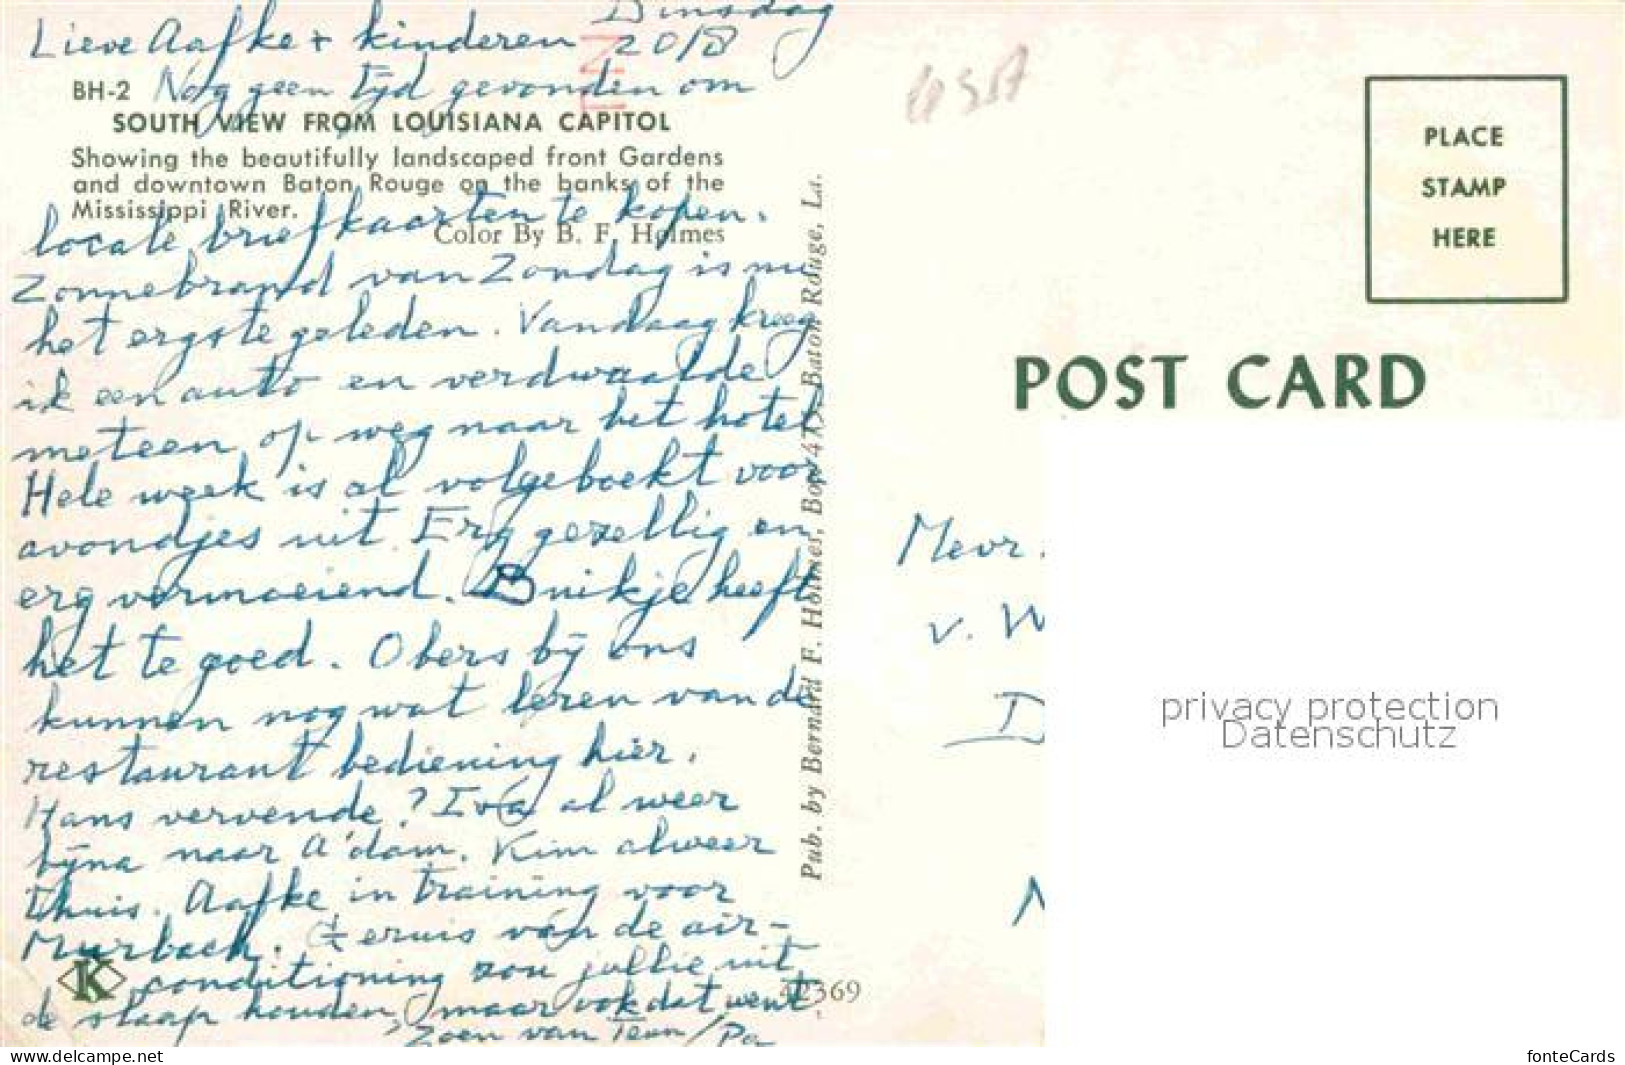 Dinsdag
Lieve Aafke + kinderen 20/8
BH-2 Nog geen tijd gevonden om
SOUTH VIEW FROM LOUISIANA CAPITOL
Showing the beautifully landscaped front Gardens
and downtown Baton Rouge on the banks of the
Mississippi River.
Color By B. F. Holmes
locale briefkaarten te kopen.
Zonnebrand van Zondag is nu
het ergste geleden. Vandaag kreeg
ik een auto en verdwaalde
meteen op weg naar het hotel
Hele week is al volgeboekt voor
avondjes uit. Erg gezellig en
erg vermoeiend. Buikje heeft
het te goed. Obers bij ons
kunnen nog wat leren van de
restaurant bediening hier.
Hans vervende? Iva al weer
bijna naar A'dam. Kim alweer
thuis. Aafke in training voor
Murbach. Geruis van de air-
conditioning zou jullie uit
de slaap houden, maar ook dat went.
Zoen van Teun/Pa
Pub. by Bernard F. Holmes, Box 475, Baton Rouge, La.
K
42369
PLACE
STAMP
HERE
POST CARD
Mevr.
v. W
D
privacy protection
Datenschutz
N
https://www.delcampe.net
fonteCards